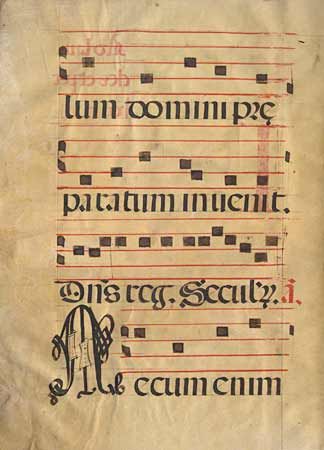 lum domini prę
paratum inuenit.
Dñs reg. Seculꝝ. ã.
M ecum enim